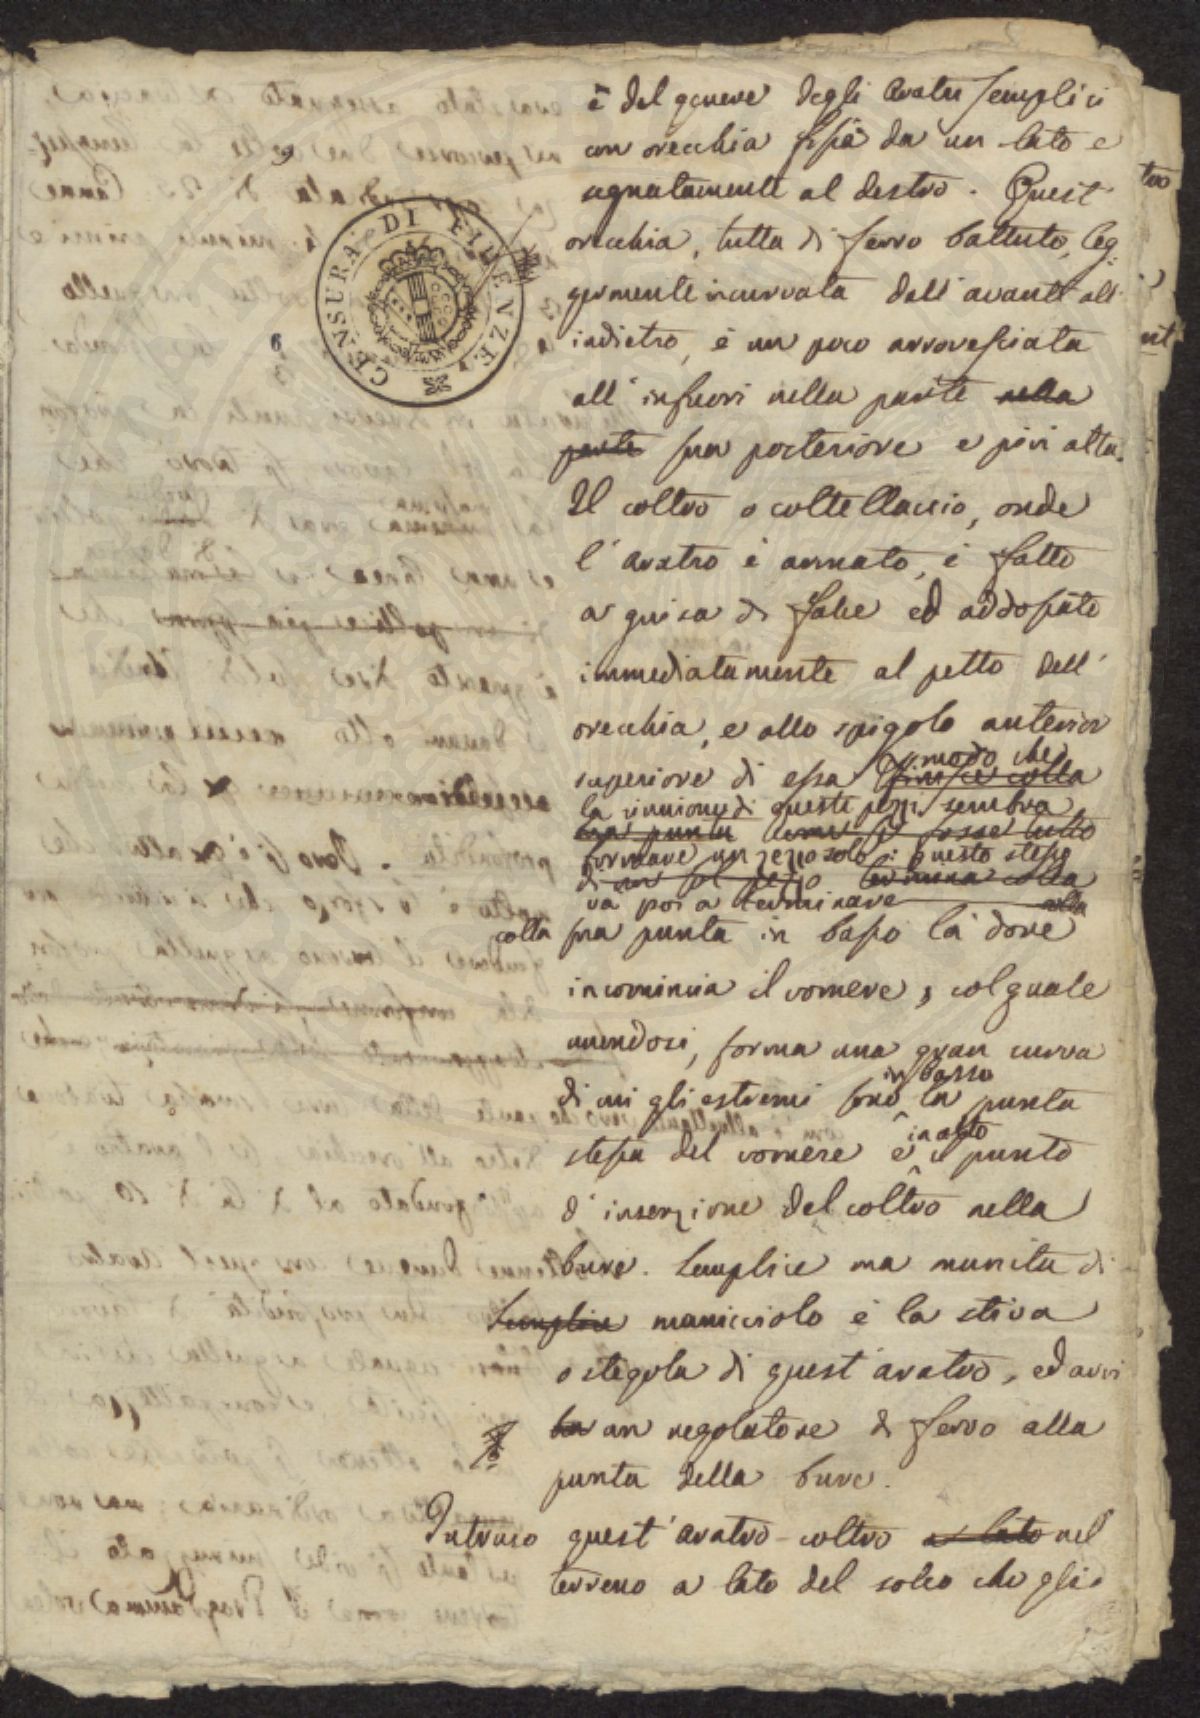 è del genere degli aratri semplici
con orecchia fissa da un lato e
segnatamente al destro. Quest'
orecchia, tutta di ferro battuto, leg
germente incurvata dall'avanti all'
indietro, è un poco arrovesciata
all'infuori nella parte nella
parte sua posteriore e più alta.
Il coltro o coltellaccio, onde
l'aratro è armato, è fatto
a guisa di falce ed addossato
immediatamente al petto dell'
orecchia, e allo spigolo anterior
superiore di essa per modo che
finisce colla
la riunione di questi pezzi sembra
sua punta come se fosse tutto
formare un pezzo solo: questo stesso
di un sol pezzo termina colla
va poi a terminare colla
colla sua punta in basso là dove
incomincia il vomere, col quale
unendosi, forma una gran curva
in basso
di cui gli estremi sono la punta
in alto
stessa del vomere e il punto
d'inserzione del coltro nella
bure. Semplice ma munita di
Semplice manicciolo è la stiva
o stegola di quest'aratro, ed avvi
ha un regolatore di ferro alla
punta della bure.
Intruso quest'aratro-coltro a lato nel
terreno a lato del solco che gli è
CENSURA DI FIRENZE